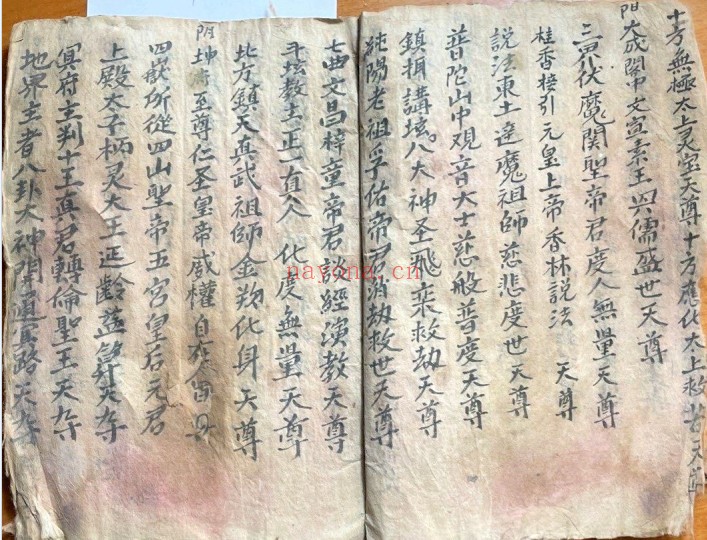 十方無極太上灵宝天尊十方應化太上救苦天尊
門大成閣中文宣素王兴儒盛世天尊
三界伏魔関聖帝君度人無量天尊
桂香接引元皇上帝香林説法 天尊
説法東土達魔祖師慈悲度世天尊
普陀山中观音大士慈般普度天尊
鎮坛八大神圣飛來救劫天尊
純陽老祖孚佑帝君消劫救世天尊
七曲文昌梓童帝君談經演教天尊
斗坛教主正一真人 化度無量天尊
北方鎮天真武祖師金化身天尊
坤至尊仁圣皇帝威權自在
四嶽所從四山聖帝五宫皇后元君
上殿太子柄灵大王延齡益算天尊
冥府主判十王真君轉輪聖王天尊
地界主者八卦大神開通冥路天尊
nayona.cn